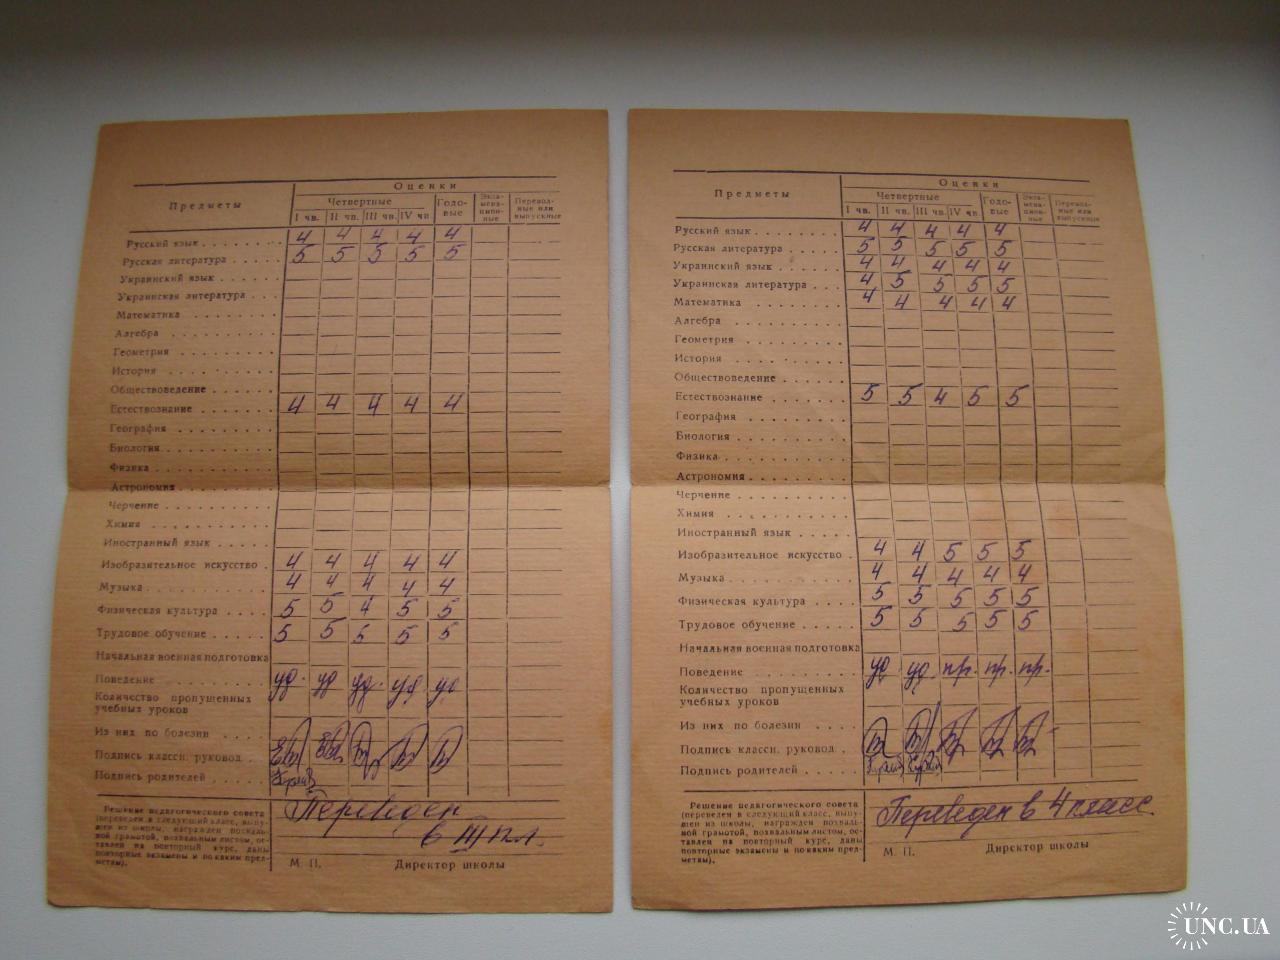 Оценки
Предметы
Четвертные
Годо-
вые
Экза-
мена-
цион-
ные
Перевод-
ные или
выпускные
I чв. II чв. III чв. IV чв.
Русский язык 4 4 4 4 4
Русская литература 5 5 5 5 5
Украинский язык
Украинская литература
Математика
Алгебра
Геометрия
История
Обществоведение
Естествознание 4 4 4 4 4
География
Биология
Физика
Астрономия
Черчение
Химия
Иностранный язык
Изобразительное искусство 4 4 4 4 4
Музыка 4 4 4 4 4
Физическая культура 5 5 4 5 5
Трудовое обучение 5 5 5 5 5
Начальная военная подготовка
Поведение уд. уд уд. уд уд
Количество пропущенных
учебных уроков
Из них по болезни
Подпись классн. руковод.
Подпись родителей
Решение педагогического совета
(переведен в следующий класс, выпу-
щен из школы, награжден похваль-
ной грамотой, похвальным листом, ос-
тавлен на повторный курс, даны
повторные экзамены и по каким пред-
метам).
Переведен
в III кл.
М. П. Директор школы
Оценки
Предметы
Четвертные
Годо-
вые
Экза-
мена-
цион-
ные
Перевод-
ные или
выпускные
I чв. II чв. III чв. IV чв.
Русский язык 4 4 4 4 4
Русская литература 5 5 5 5 5
Украинский язык 4 4 4 4 4
Украинская литература 4 5 5 5 5
Математика 4 4 4 4 4
Алгебра
Геометрия
История
Обществоведение
Естествознание 5 5 4 5 5
География
Биология
Физика
Астрономия
Черчение
Химия
Иностранный язык
Изобразительное искусство 4 4 5 5 5
Музыка 4 4 4 4 4
Физическая культура 5 5 5 5 5
Трудовое обучение 5 5 5 5 5
Начальная военная подготовка
Поведение уд. уд. пр. пр. пр.
Количество пропущенных
учебных уроков
Из них по болезни
Подпись классн. руковод.
Подпись родителей
Решение педагогического совета
(переведен в следующий класс, выпу-
щен из школы, награжден похваль-
ной грамотой, похвальным листом, ос-
тавлен на повторный курс, даны
повторные экзамены и по каким пред-
метам).
Переведен в 4 класс.
М. П. Директор школы
UNC.UA